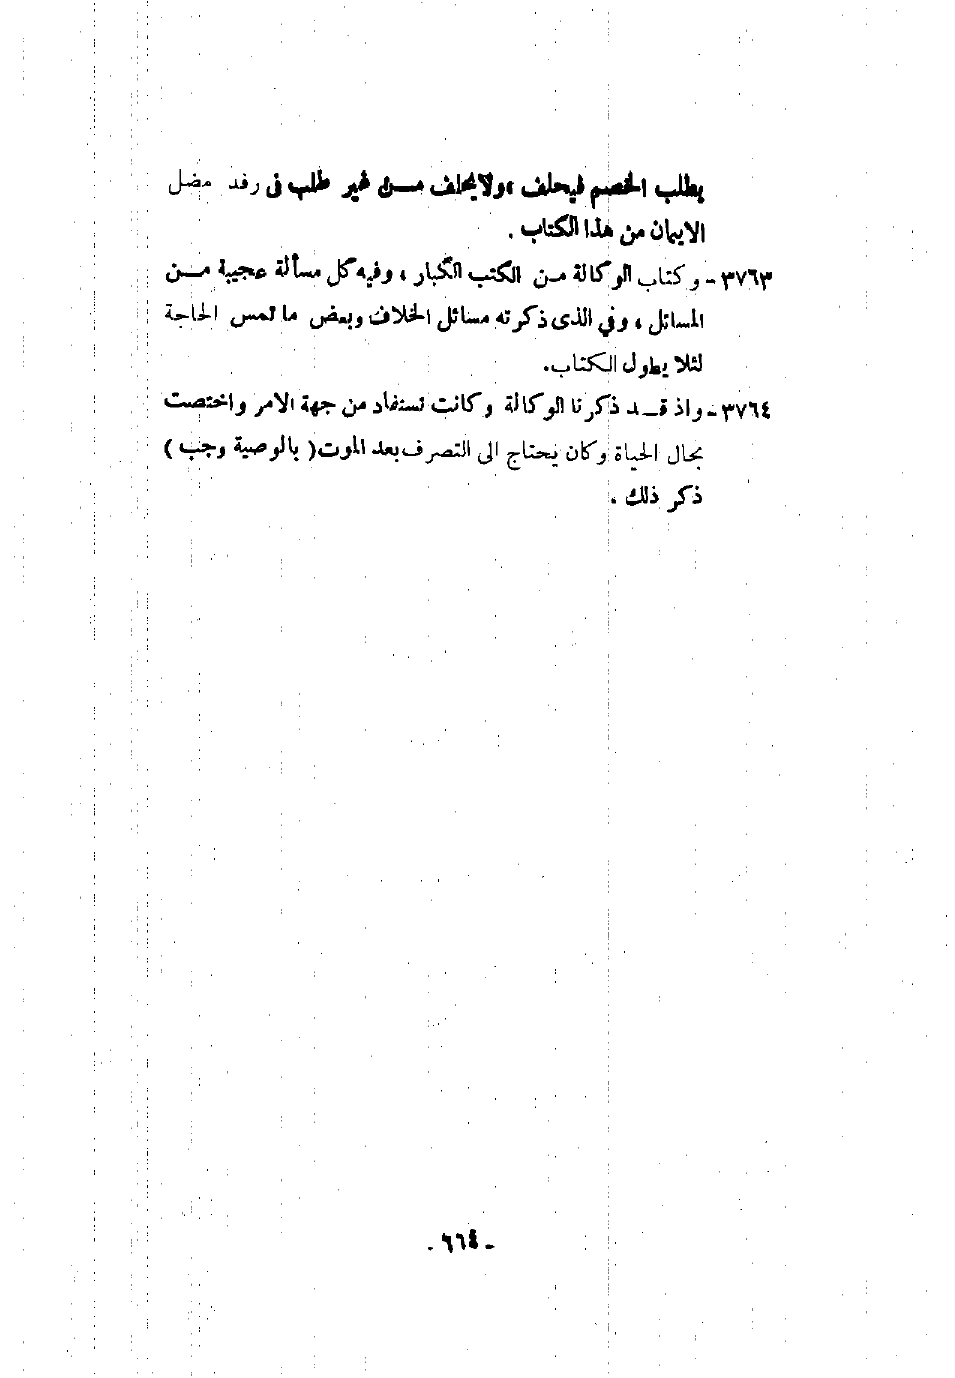 يطلب الخصم فيحلف ،ولا يحلف مــن غير طلب فى رفد مضل
الايمان من هذا الكتاب .
٣٧٦٣ - وكتاب الوكالة مـن الكتب الكبار ، وفيه كل مسألة عجيبة مــن
المسائل ، وفي الذى ذكرته مسائل الخلاف وبعض ما تمس الحاجة
لئلا يطول الكتاب.
٣٧٦٤ - واذ قــد ذكرنا الوكالة وكانت تستفاد من جهة الامر واختصت
بحال الحياة وكان يحتاج الى التصرف بعد الموت ( بالوصية وجب )
ذكر ذلك .
- ٦٦٤ -